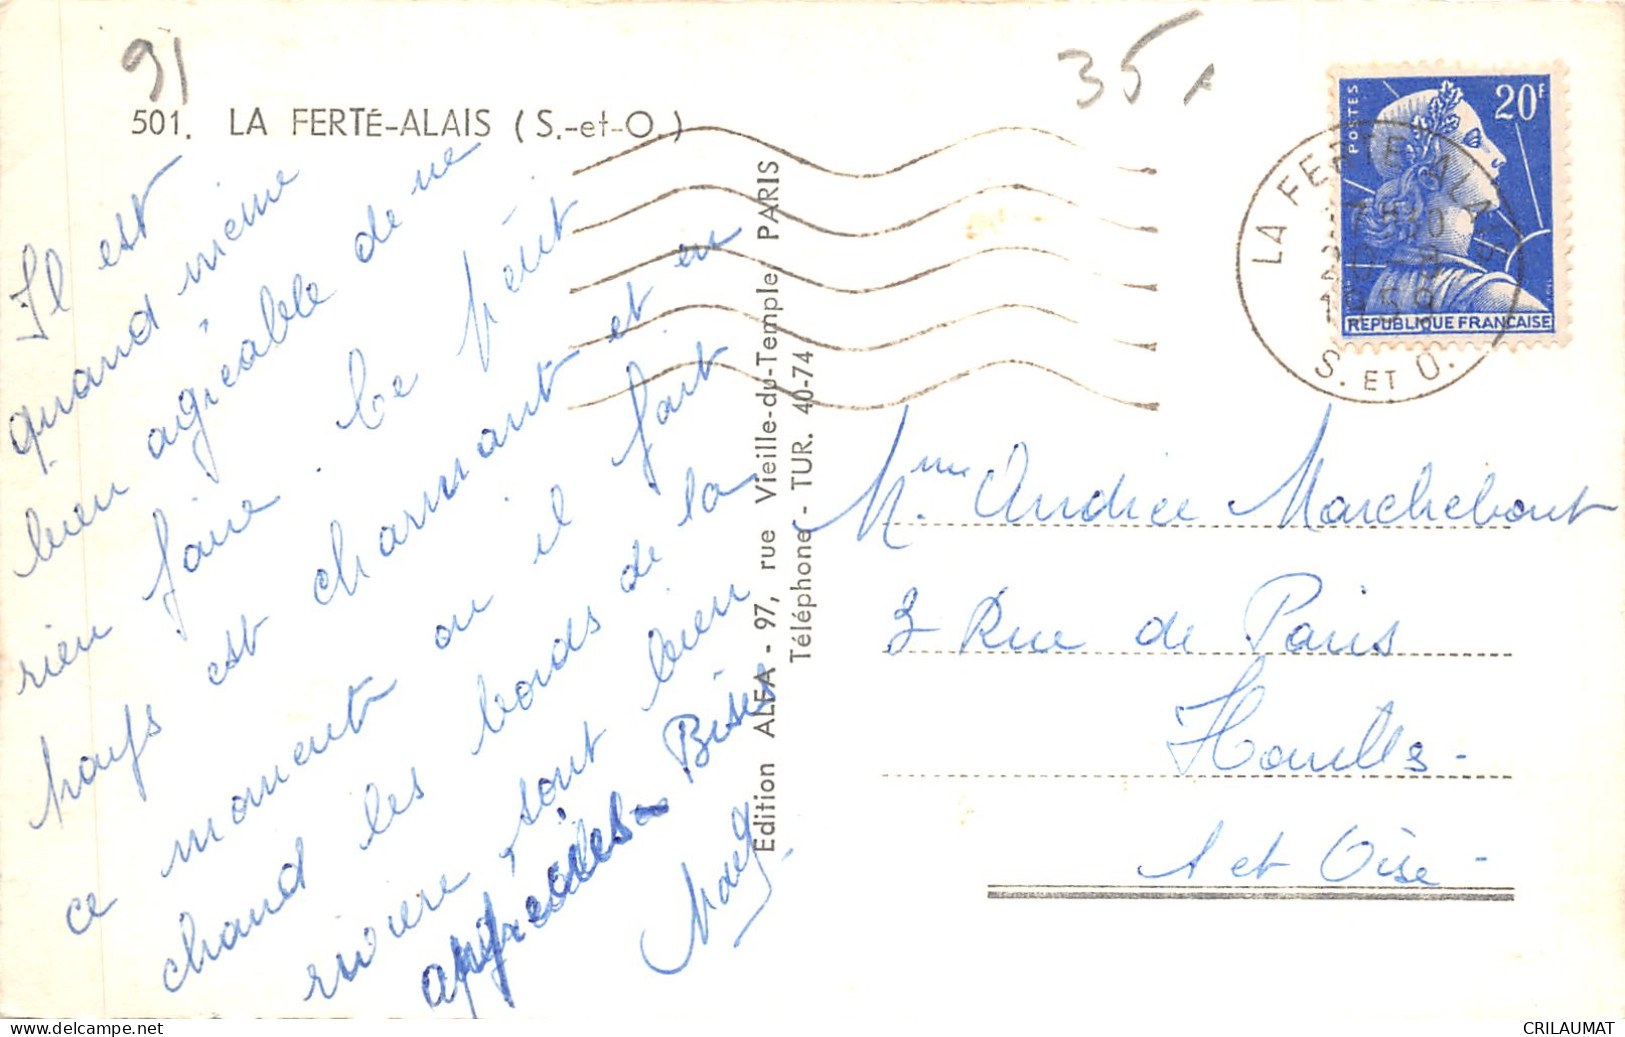 91
35
501. LA FERTÉ-ALAIS (S.-et-O.)
Il est
quand même
bien agréable de ne
rien faire. Ce petit
pays est charmant et en
ce moment ou il fait
chaud les bords de la
rivière sont bien
appréciées - Bises
Edition ALFA - 97, rue Vieille-du-Temple, PARIS
Téléphone - TUR. 40-74
POSTES
20F
REPUBLIQUE FRANÇAISE
LA FERTE-ALAIS
1959
S. ET O.
Mme Andrée Marchebout
3 Rue de Paris
Houilles -
S et Oise -
delcampe.net
CRILAUMAT